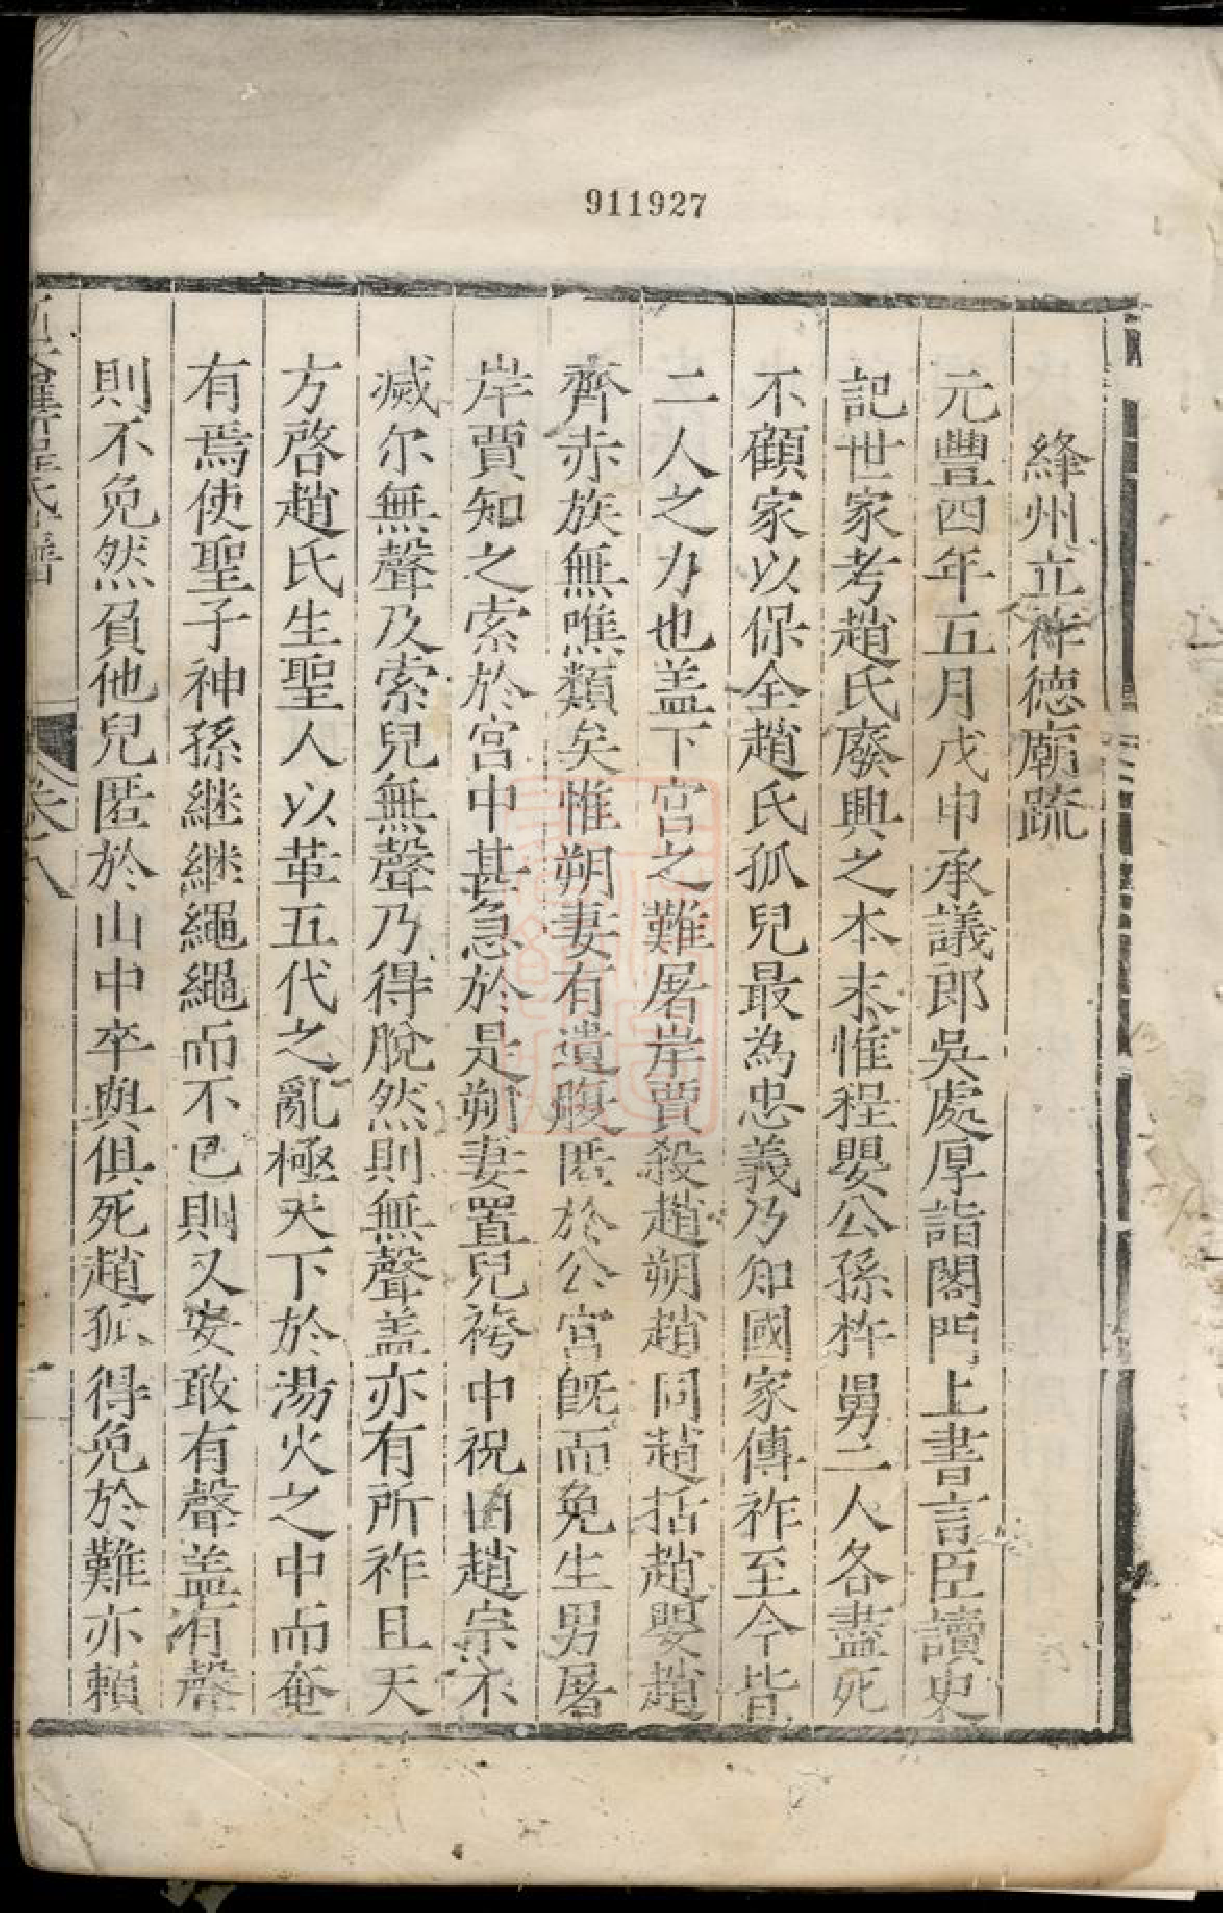 911927
絳州立祚德廟䟽
元豐四年五月戊申承議郎吳處厚詣閣門上書言臣讀史
記世家考趙氏廢興之本末惟程嬰公孫杵臼二人各盡死
不顧家以保全趙氏孤兒最為忠義乃知國家傳祚至今皆
二人之力也盖下宮之難屠岸賈殺趙朔趙同趙括趙嬰趙
齊赤族無噍類矣惟朔妻有遺腹匿於公宮旣而免生男屠
岸賈知之索於宮中甚急於是朔妻置兒袴中祝曰趙宗不
滅尔無聲及索兒無聲乃得脫然則無聲盖亦有所祚且天
方啓趙氏生聖人以革五代之亂極天下於湯火之中而奄
有焉使聖子神孫継継繩繩而不已則又安敢有聲盖有聲
則不免然負他兒匿於山中卒與俱死趙孤得免於難亦賴
程氏譜 卷之八